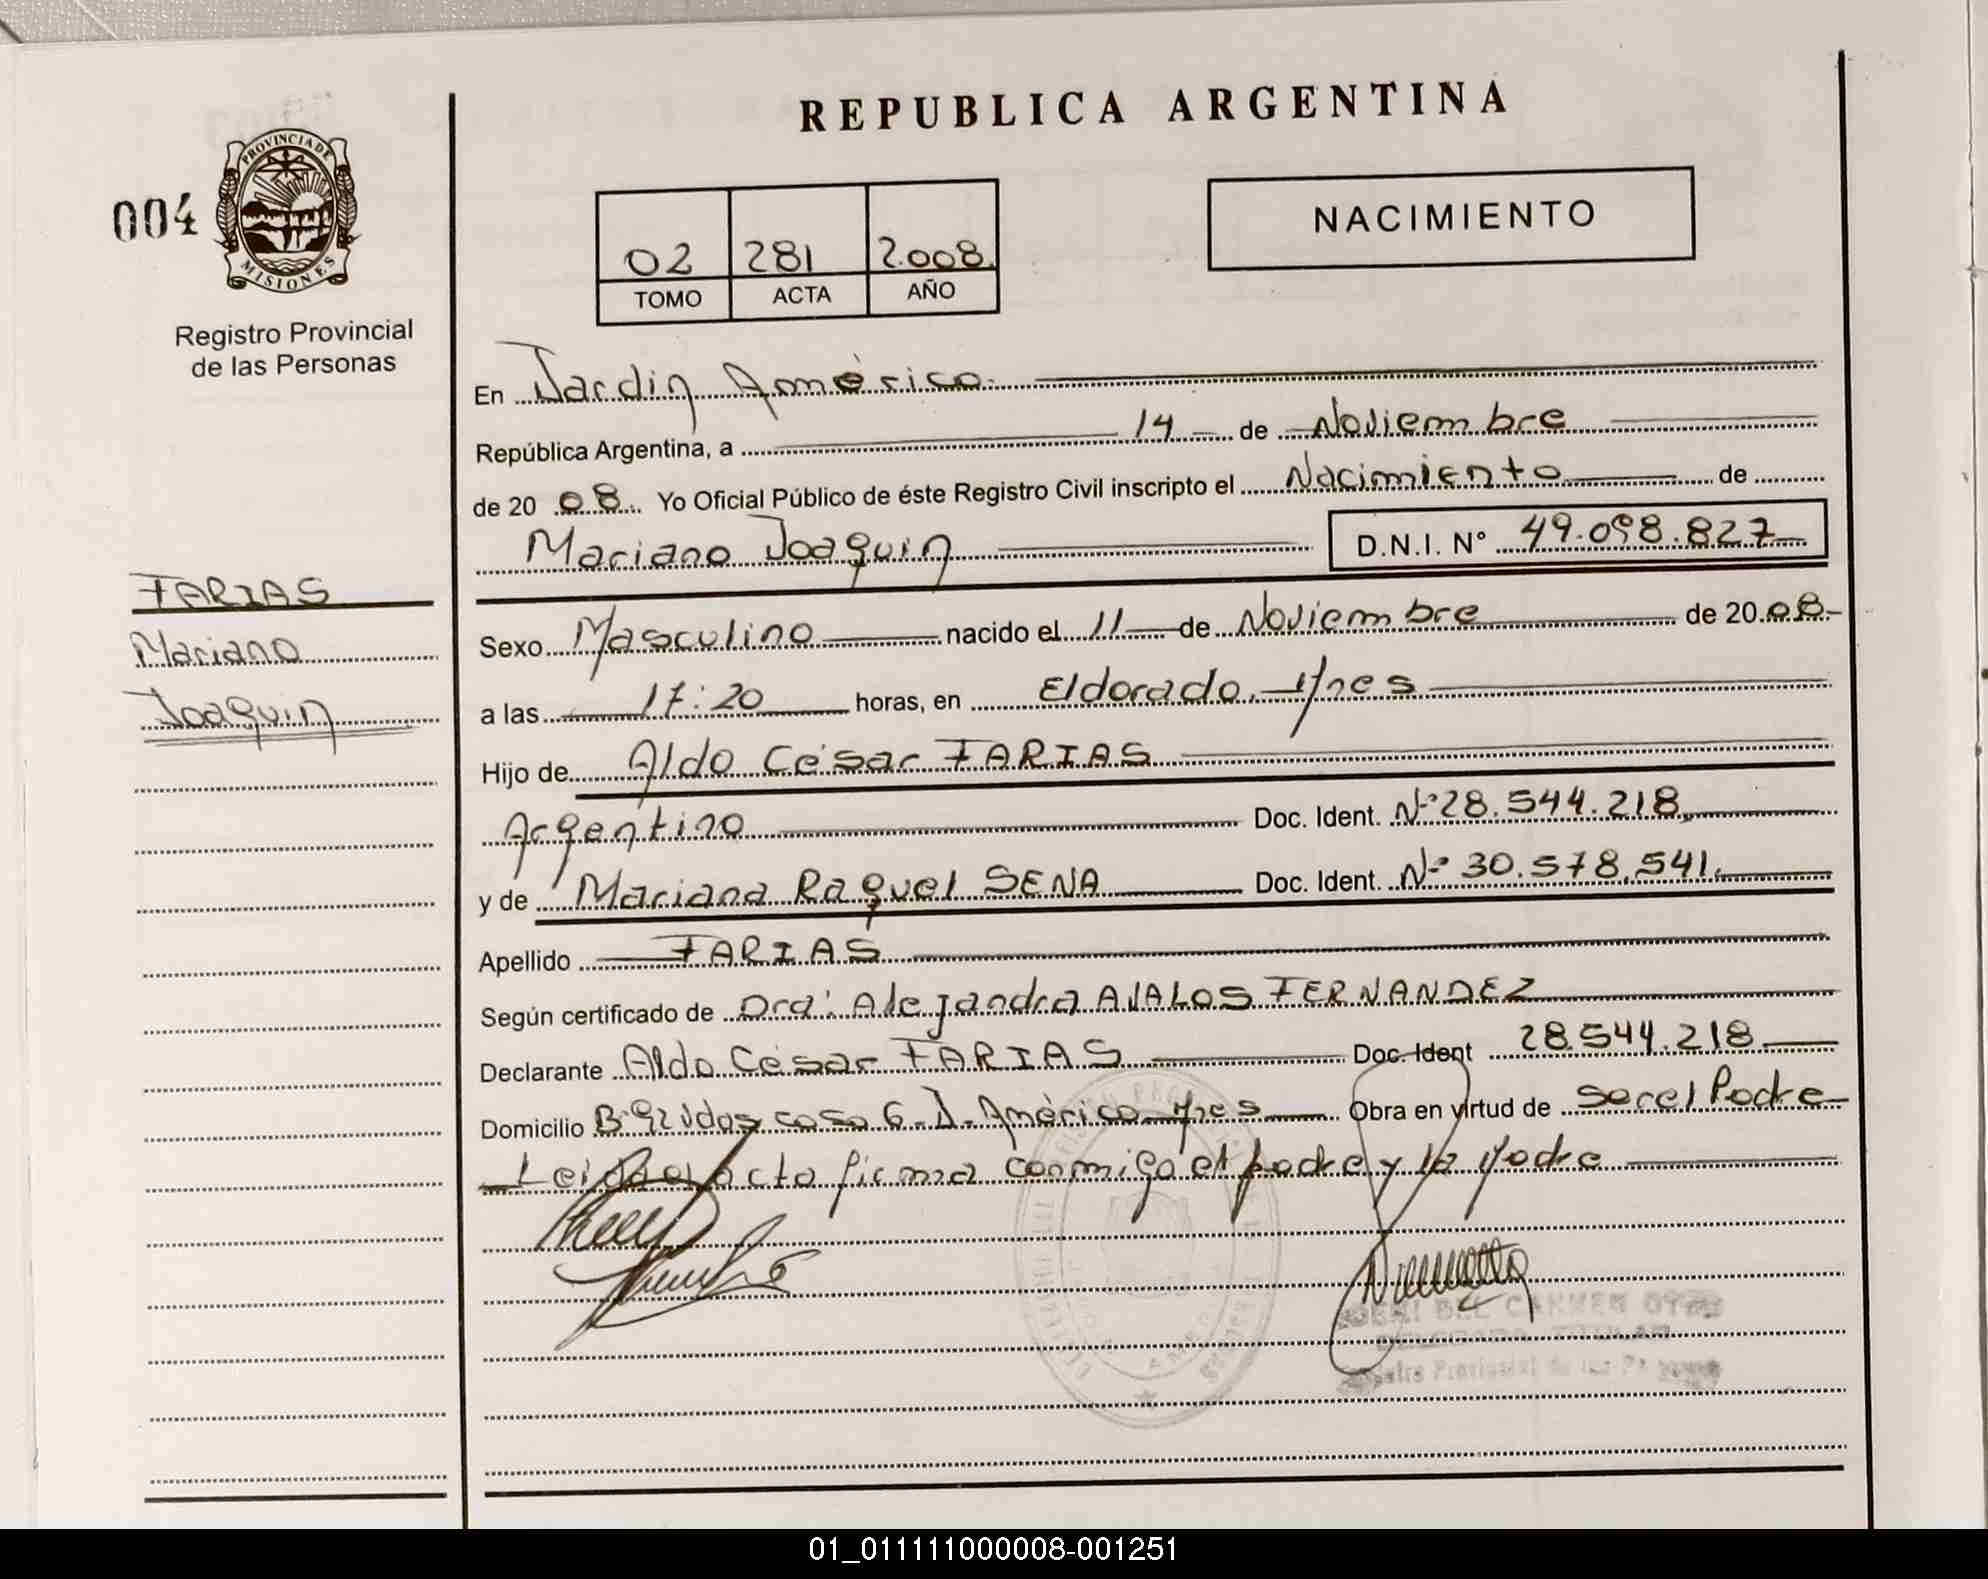 REPUBLICA ARGENTINA
004
PROVINCIA DE
MISIONES
Registro Provincial
de las Personas
02 281 2.008.
TOMO ACTA AÑO
NACIMIENTO
En Jardin América.
República Argentina, a 14 de Noviembre
de 20 08. Yo Oficial Público de éste Registro Civil inscripto el Nacimiento de
Mariano Joaquin D.N.I. N° 49.098.827
FARIAS
Mariano
Joaquin
Sexo Masculino nacido el 11 de Noviembre de 20 08.
a las 17:20 horas, en Eldorado, Mnes
Hijo de Aldo César FARIAS
Argentino Doc. Ident. N° 28.544.218
y de Mariana Raquel SENA Doc. Ident. N° 30.578.541.
Apellido FARIAS
Según certificado de Dra: Alejandra AVALOS FERNANDEZ
Declarante Aldo César FARIAS Doc. Ident 28.544.218
Domicilio casa 6. J. América Mnes Obra en virtud de ser el Padre
Leida el acta firma conmigo el padre y la Madre
DEL CARMEN
TITULAR
Registro Provincial de las
01_011111000008-001251